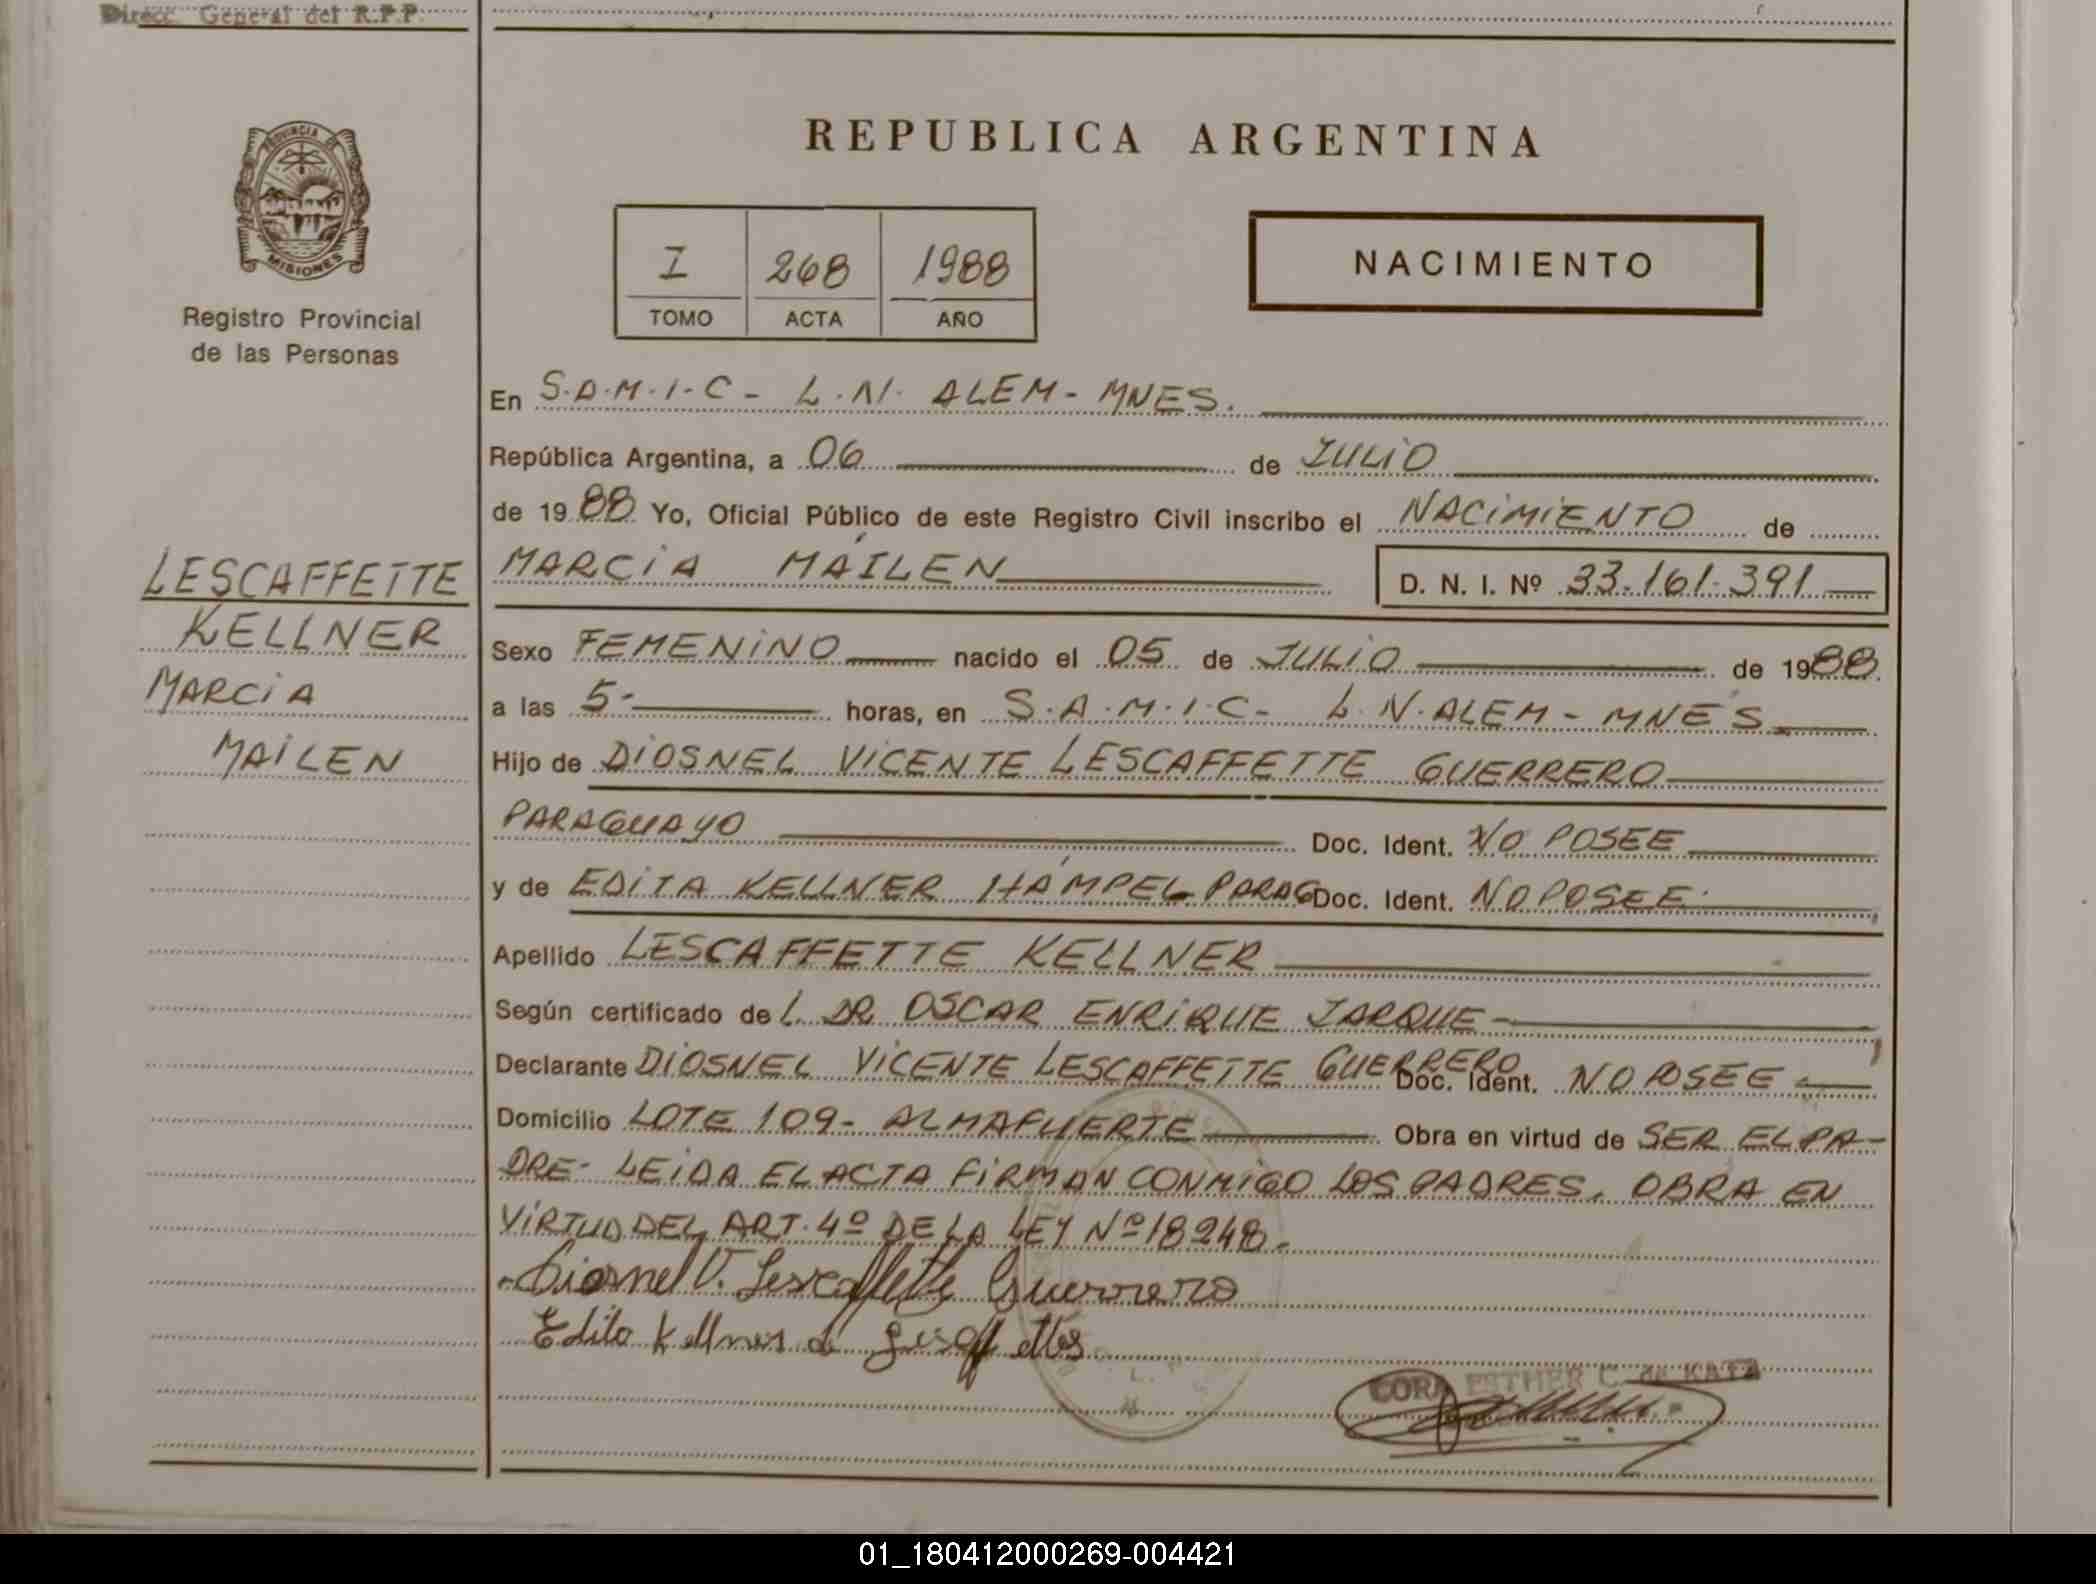 Direcc. General del R.P.P.
PROVINCIA DE
MISIONES
Registro Provincial
de las Personas
LESCAFFETTE
KELLNER
MARCIA
MAILEN
REPUBLICA ARGENTINA
I 268 1988
TOMO ACTA AÑO
NACIMIENTO
En S.A.M.I.C - L.N. ALEM - MNES.
República Argentina, a 06 de JULIO
de 1988 Yo, Oficial Público de este Registro Civil inscribo el NACIMIENTO de
MARCIA MÁILEN D. N. I. Nº 33.161.391
Sexo FEMENINO nacido el 05 de JULIO de 1988.
a las 5- horas, en S.A.M.I.C- L.N.ALEM - MNES
Hijo de DIOSNEL VICENTE LESCAFFETTE GUERRERO
PARAGUAYO Doc. Ident. NO POSEE
y de EDITA KELLNER HÁMPEL PARAG Doc. Ident. NO POSEE
Apellido LESCAFFETTE KELLNER
Según certificado de L. DR OSCAR ENRIQUE JARQUE -
Declarante DIOSNEL VICENTE LESCAFFETTE GUERRERO Doc. Ident. NO POSEE -
Domicilio LOTE 109 - ALMAFUERTE Obra en virtud de SER EL PA-
DRE - LEIDA EL ACTA FIRMAN CONMIGO LOS PADRES. OBRA EN
VIRTUD DEL ART. 4º DE LA LEY Nº 18248.-
Diosnel V. Lescaffette Guerrero
Edita Kellner de Lescaffette
CORA ESTHER C. de KATZ
01_180412000269-004421